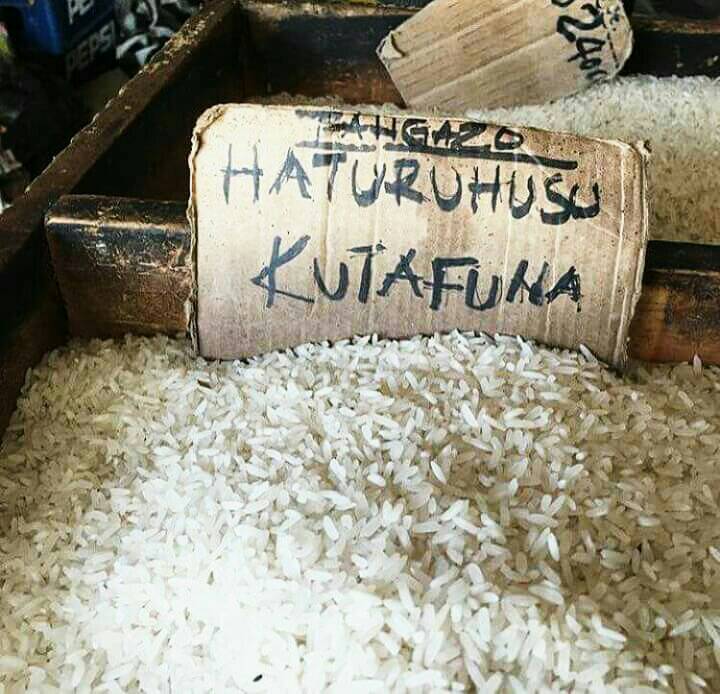 PEPSI
2400
TANGAZO
HATURUHUSU
KUTAFUNA